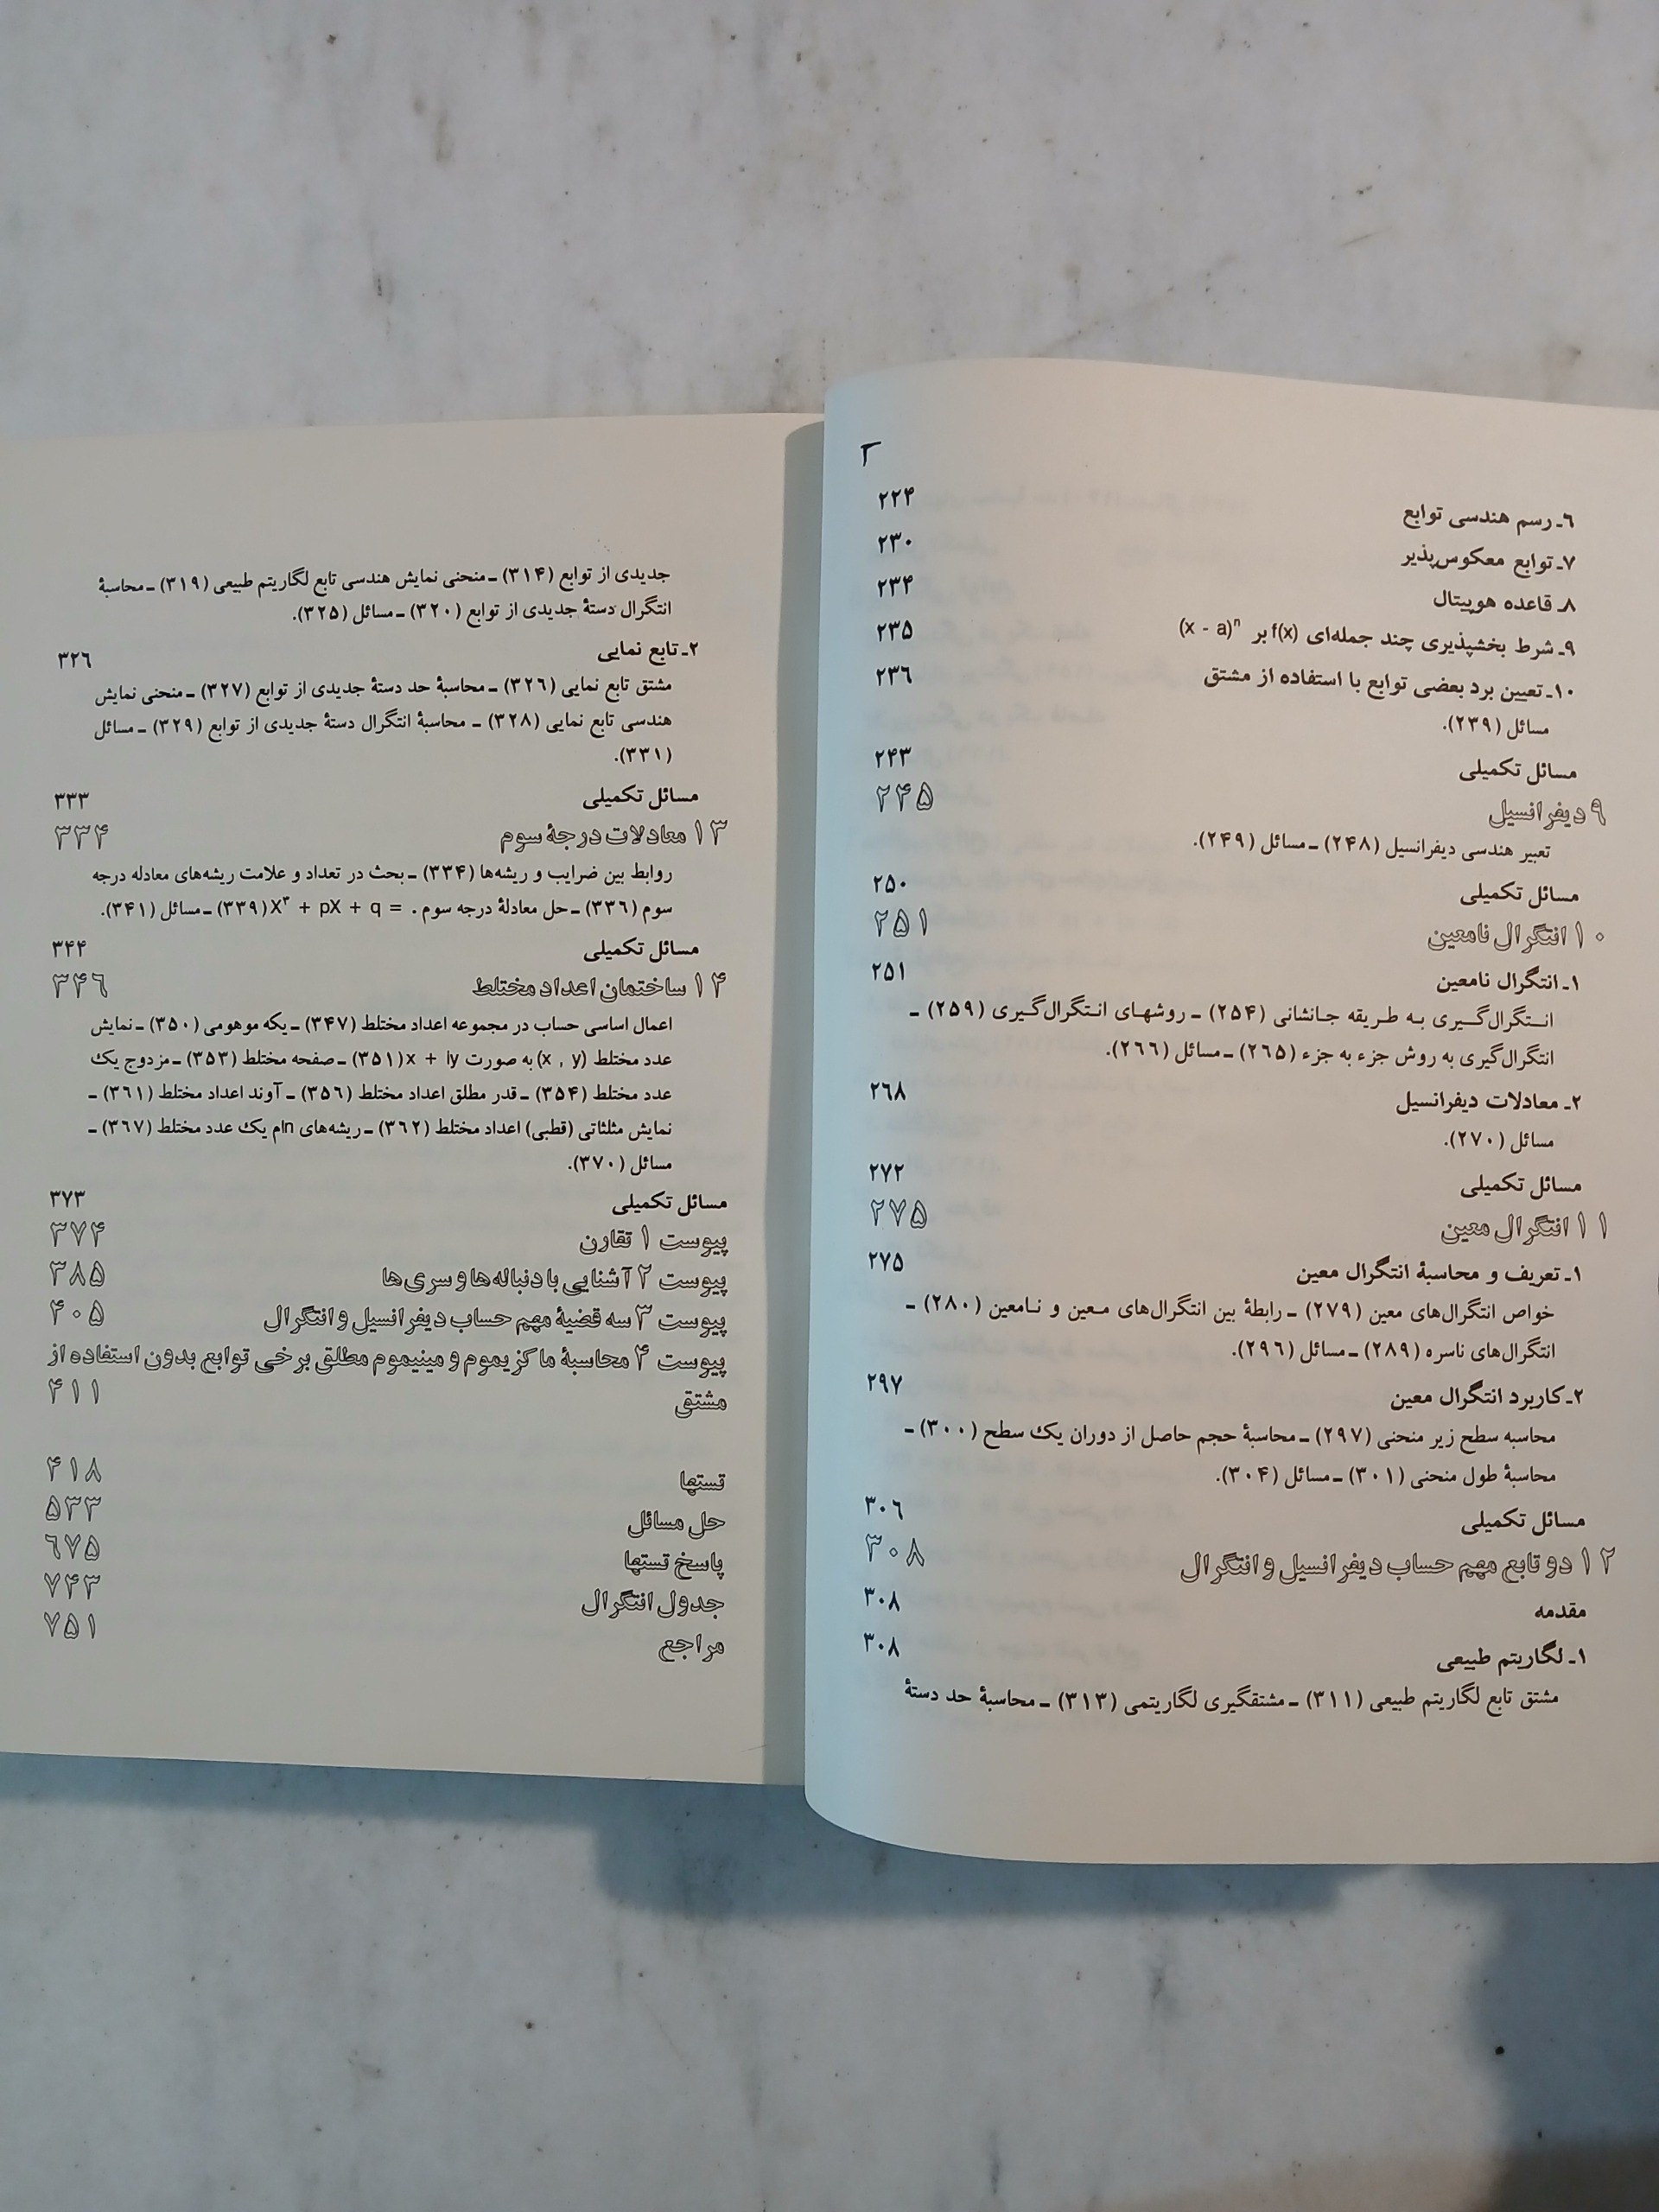 ۶ـ رسم هندسی توابع ۲۲۴
۷ـ توابع معکوس‌پذیر ۲۳۰
۸ـ قاعده هوپیتال ۲۳۴
۹ـ شرط بخشپذیری چند جمله‌ای f(x) بر (x - a)ⁿ ۲۳۵
۱۰ـ تعیین برد بعضی توابع با استفاده از مشتق ۲۳۶
مسائل (۲۳۹).
مسائل تکمیلی ۲۴۳
۹ دیفرانسیل ۲۴۵
تعبیر هندسی دیفرانسیل (۲۴۸) ـ مسائل (۲۴۹).
مسائل تکمیلی ۲۵۰
۱۰ انتگرال نامعین ۲۵۱
۱ـ انتگرال نامعین ۲۵۱
انتگرال‌گیری به طریقه جانشانی (۲۵۴) ـ روشهای انتگرال‌گیری (۲۵۹) ـ
انتگرال‌گیری به روش جزء به جزء (۲۶۵) ـ مسائل (۲۶۶).
۲ـ معادلات دیفرانسیل ۲۶۸
مسائل (۲۷۰).
مسائل تکمیلی ۲۷۲
۱۱ انتگرال معین ۲۷۵
۱ـ تعریف و محاسبهٔ انتگرال معین ۲۷۵
خواص انتگرال‌های معین (۲۷۹) ـ رابطهٔ بین انتگرال‌های معین و نامعین (۲۸۰) ـ
انتگرال‌های ناسره (۲۸۹) ـ مسائل (۲۹۶).
۲ـ کاربرد انتگرال معین ۲۹۷
محاسبه سطح زیر منحنی (۲۹۷) ـ محاسبهٔ حجم حاصل از دوران یک سطح (۳۰۰) ـ
محاسبهٔ طول منحنی (۳۰۱) ـ مسائل (۳۰۴).
مسائل تکمیلی ۳۰۶
۱۲ دو تابع مهم حساب دیفرانسیل و انتگرال ۳۰۸
مقدمه ۳۰۸
۱ـ لگاریتم طبیعی ۳۰۸
مشتق تابع لگاریتم طبیعی (۳۱۱) ـ مشتقگیری لگاریتمی (۳۱۳) ـ محاسبهٔ حد دستهٔ
جدیدی از توابع (۳۱۴) ـ منحنی نمایش هندسی تابع لگاریتم طبیعی (۳۱۹) ـ محاسبهٔ
انتگرال دستهٔ جدیدی از توابع (۳۲۰) ـ مسائل (۳۲۵).
۲ـ تابع نمایی ۳۲۶
مشتق تابع نمایی (۳۲۶) ـ محاسبهٔ حد دستهٔ جدیدی از توابع (۳۲۷) ـ منحنی نمایش
هندسی تابع نمایی (۳۲۸) ـ محاسبهٔ انتگرال دستهٔ جدیدی از توابع (۳۲۹) ـ مسائل
(۳۳۱).
مسائل تکمیلی ۳۳۳
۱۳ معادلات درجهٔ سوم ۳۳۴
روابط بین ضرایب و ریشه‌ها (۳۳۴) ـ بحث در تعداد و علامت ریشه‌های معادله درجه
سوم (۳۳۶) ـ حل معادلهٔ درجه سوم X³ + pX + q = ۰ (۳۳۹) ـ مسائل (۳۴۱).
مسائل تکمیلی ۳۴۴
۱۴ ساختمان اعداد مختلط ۳۴۶
اعمال اساسی حساب در مجموعه اعداد مختلط (۳۴۷) ـ یکه موهومی (۳۵۰) ـ نمایش
عدد مختلط (x , y) به صورت x + iy (۳۵۱) ـ صفحه مختلط (۳۵۳) ـ مزدوج یک
عدد مختلط (۳۵۴) ـ قدر مطلق اعداد مختلط (۳۵۶) ـ آوند اعداد مختلط (۳۶۱) ـ
نمایش مثلثاتی (قطبی) اعداد مختلط (۳۶۲) ـ ریشه‌های nام یک عدد مختلط (۳۶۷) ـ
مسائل (۳۷۰).
مسائل تکمیلی ۳۷۳
پیوست ۱ تقارن ۳۷۴
پیوست ۲ آشنایی با دنباله‌ها و سری‌ها ۳۸۵
پیوست ۳ سه قضیهٔ مهم حساب دیفرانسیل و انتگرال ۴۰۵
پیوست ۴ محاسبهٔ ماکزیموم و مینیموم مطلق برخی توابع بدون استفاده از
مشتق ۴۱۱
تستها ۴۱۸
حل مسائل ۵۳۳
پاسخ تستها ۶۷۵
جدول انتگرال ۷۴۳
مراجع ۷۵۱